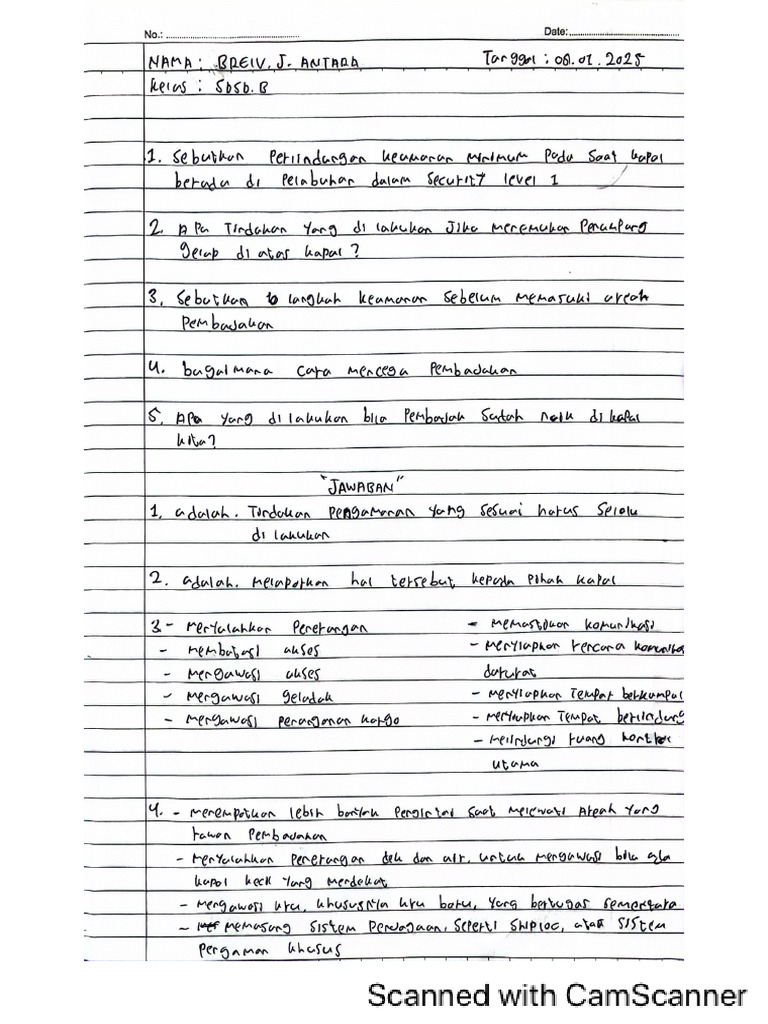 No.: ........................................
Date: ........................................
NAMA : BREIV. J. ANTARA
Tanggal : 08.01.2025
Kelas : SDSD. B
1. Sebutkan Perlindungan keamanan minimum Pada Saat kapal
berada di Pelabuhan dalam Security level 1
2. APa Tindakan Yang di lakukan Jika menemukan Penumpang
gelap di atas kapal ?
3. Sebutkan 10 langkah keamanan Sebelum memasuki areah
Pembajakan
4. bagaimana cara mencega Pembajakan
5. APa Yang di lakukan bila Pembajak Sudah naik di kapal
kita?
"JAWABAN"
1. adalah. Tindakan Pengamanan Yang Sesuai harus Selalu
di lakukan
2. adalah. melaporkan hal tersebut kepada Pihak kapal
3 - menyalahkan Penerangan
- membatasi akses
- mengawasi akses
- mengawasi geladak
- mengawasi penanganan kargo
- memastikan komunikasi
- menyiapkan rencana
darurat
- menyiapkan Tempat berkumpul
- menyiapkan Tempat berlindung
- melindungi ruang
utama
4. - menempatkan lebih banyak Pengintai Saat melewati Areah Yang
rawan Pembajakan
- menyalahkan Penerangan dek dan air, untuk mengawasi bila ada
kapal kecil Yang mendekat
- mengawasi kru, khususnya kru baru, Yang bertugas sementara
- memasang Sistem Penjagaan, Seperti SHIPLOC, atau Sistem
Pengaman khusus
Scanned with CamScanner